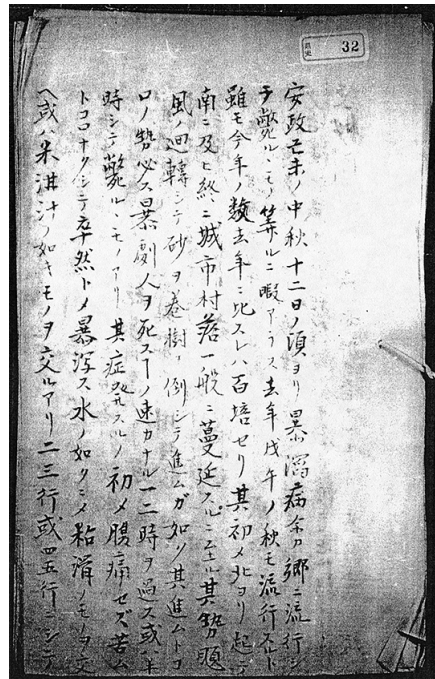 32
安政己未ノ中秋十二日ノ頃ヨリ暴瀉病余カ郷ニ流行シ
テ斃ルヽモノ算ルニ暇アラス去年戊午ノ秋モ流行スルト
雖モ今年ノ数去年ニ比スレハ百培セリ其初メ北ヨリ起テ
南ニ及ヒ終ニ城市村落一般ニ蔓延スルニ至ル其勢颶
風ノ廻轉シテ砂ヲ巻樹ヲ倒シテ進ムガ如ク其進ムトコ
ロノ勢必ス暴劇人ヲ死スヿノ速カナル一二時ヲ過ス或ハ半
時シテ斃ルヽモノアリ其症発スルノ初メ腹痛セズ苦ム
トコロナクシテ卒然トメ暴瀉ス水ノ如クニメ粘滑ノモノヲ交
ヘ或ハ米泔汁ノ如キモノヲ交ルアリ二三行或四五行ニシテ